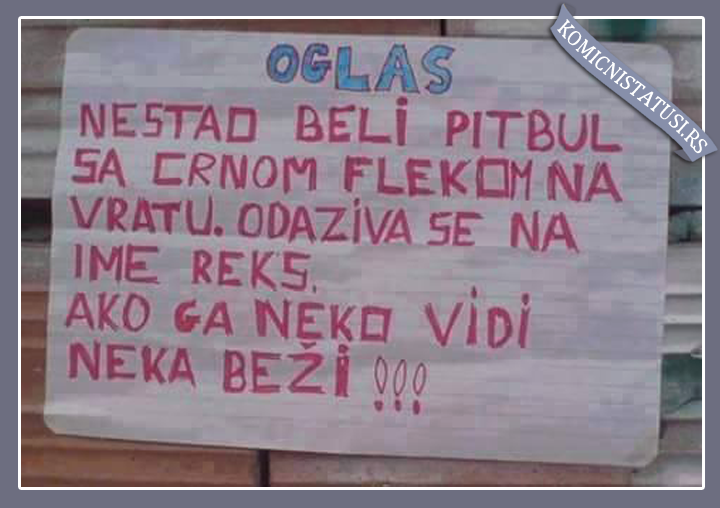 OGLAS
NESTAO BELI PITBUL
SA CRNOM FLEKOM NA
VRATU. ODAZIVA SE NA
IME REKS.
AKO GA NEKO VIDI
NEKA BEŽI !!!
KOMICNISTATUSI.RS